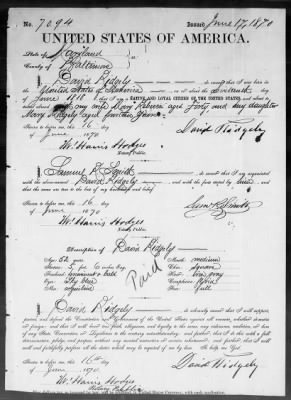 No. 7094 Issued June 17, 1870
UNITED STATES OF AMERICA.
State of Maryland
County of Baltimore
I, David Ridgely do swear that I was born in the
United States of America on or about the
June 1818 that I am a NATIVE AND LOYAL CITIZEN OF THE UNITED STATES, and about to
my wife Mary Rebecca aged Forty and my daughter
Mary Ridgely aged fourteen years
Sworn to before me, this 16 day
of June 1870
David Ridgely
Wm. Harris Hodges
Notary Public.
I, Samuel do swear that I am acquainted
with the above-named David Ridgely and with the facts stated by him
and that the same are true to the best of my knowledge and belief.
Sworn to before me, this 16 day
of June 1870
Wm. Harris Hodges
Notary Public.
Description of David Ridgely
Age: 52 years
Stature: 5 feet 6 inches Eng.
Forehead: prominent & bald
Eyes:
Nose:
Mouth: medium
Chin: square
Hair: iron gray
Complexion:
Face: full
Paid
I, David Ridgely do solemnly swear that I will support,
protect, and defend the Constitution and Government of the United States against all enemies, whether domestic
or foreign; and that I will bear true faith, allegiance, and loyalty to the same, any ordinance, resolution, or law
of any State, Convention, or Legislature to the contrary notwithstanding; and further, that I do this with a full
determination, pledge, and purpose, without any mental reservation or evasion whatsoever; and further, that I will
well and faithfully perform all the duties which may be required of me by law. So help me God.
Sworn to before me, this 16th
day of
June 1870
David Ridgely
Wm. Harris Hodges
Notary Public